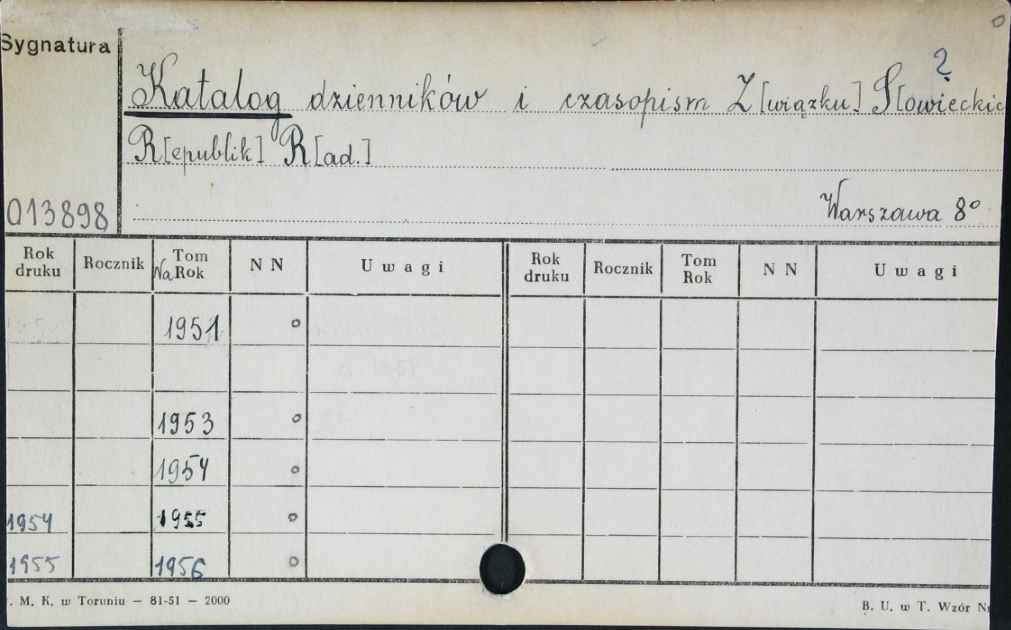 Sygnatura
?
Katalog dzienników i czasopism Z[wiązku] S[owieckic
R[epublik] R[ad.]
013898
Warszawa 8°
Rok druku Rocznik Na Tom Rok N N Uwagi Rok druku Rocznik Tom Rok N N Uwagi
1951 o
1953 o
1954 o
1954 1955 o
1955 1956 o
. M. K. w Toruniu — 81-51 — 2000
B. U. w T. Wzór N